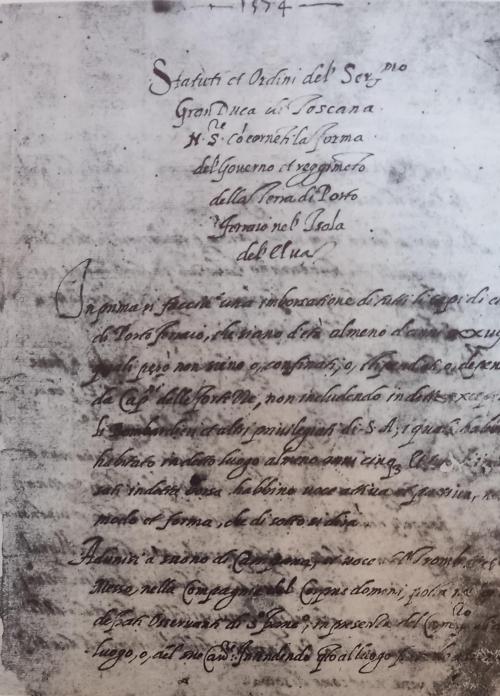 1574
Statuti et Ordini del Ser.mo
Gran Duca di Toscana
N. S.re Co'cernēti la forma
del Governo et reggimēto
della Terra di Porto
ferraio nel Isola
del Elva
In prima si faccia una imborsatione di tutti li capi di
di Porto ferraio, che siano d'età almeno d'anni
quali però non sieno o, confinati, o, stipendiati, o,
da Cap.i delle forteze, non includendo in dette
li Bombardieri et altri privilegiati di S. A; i quali
habitato in detto luogo almeno anni cinq3
sati in detta borsa habbino voce attiva et passiva,
modo et forma, che di sotto si dirà
Adunisi à suono di Campana, et voce
Messo, nella Compagnia del Corpus domini,
de frati Osservanti di S.to, in presenza del
luogo, o, del suo Intendendo q̄to al luogo